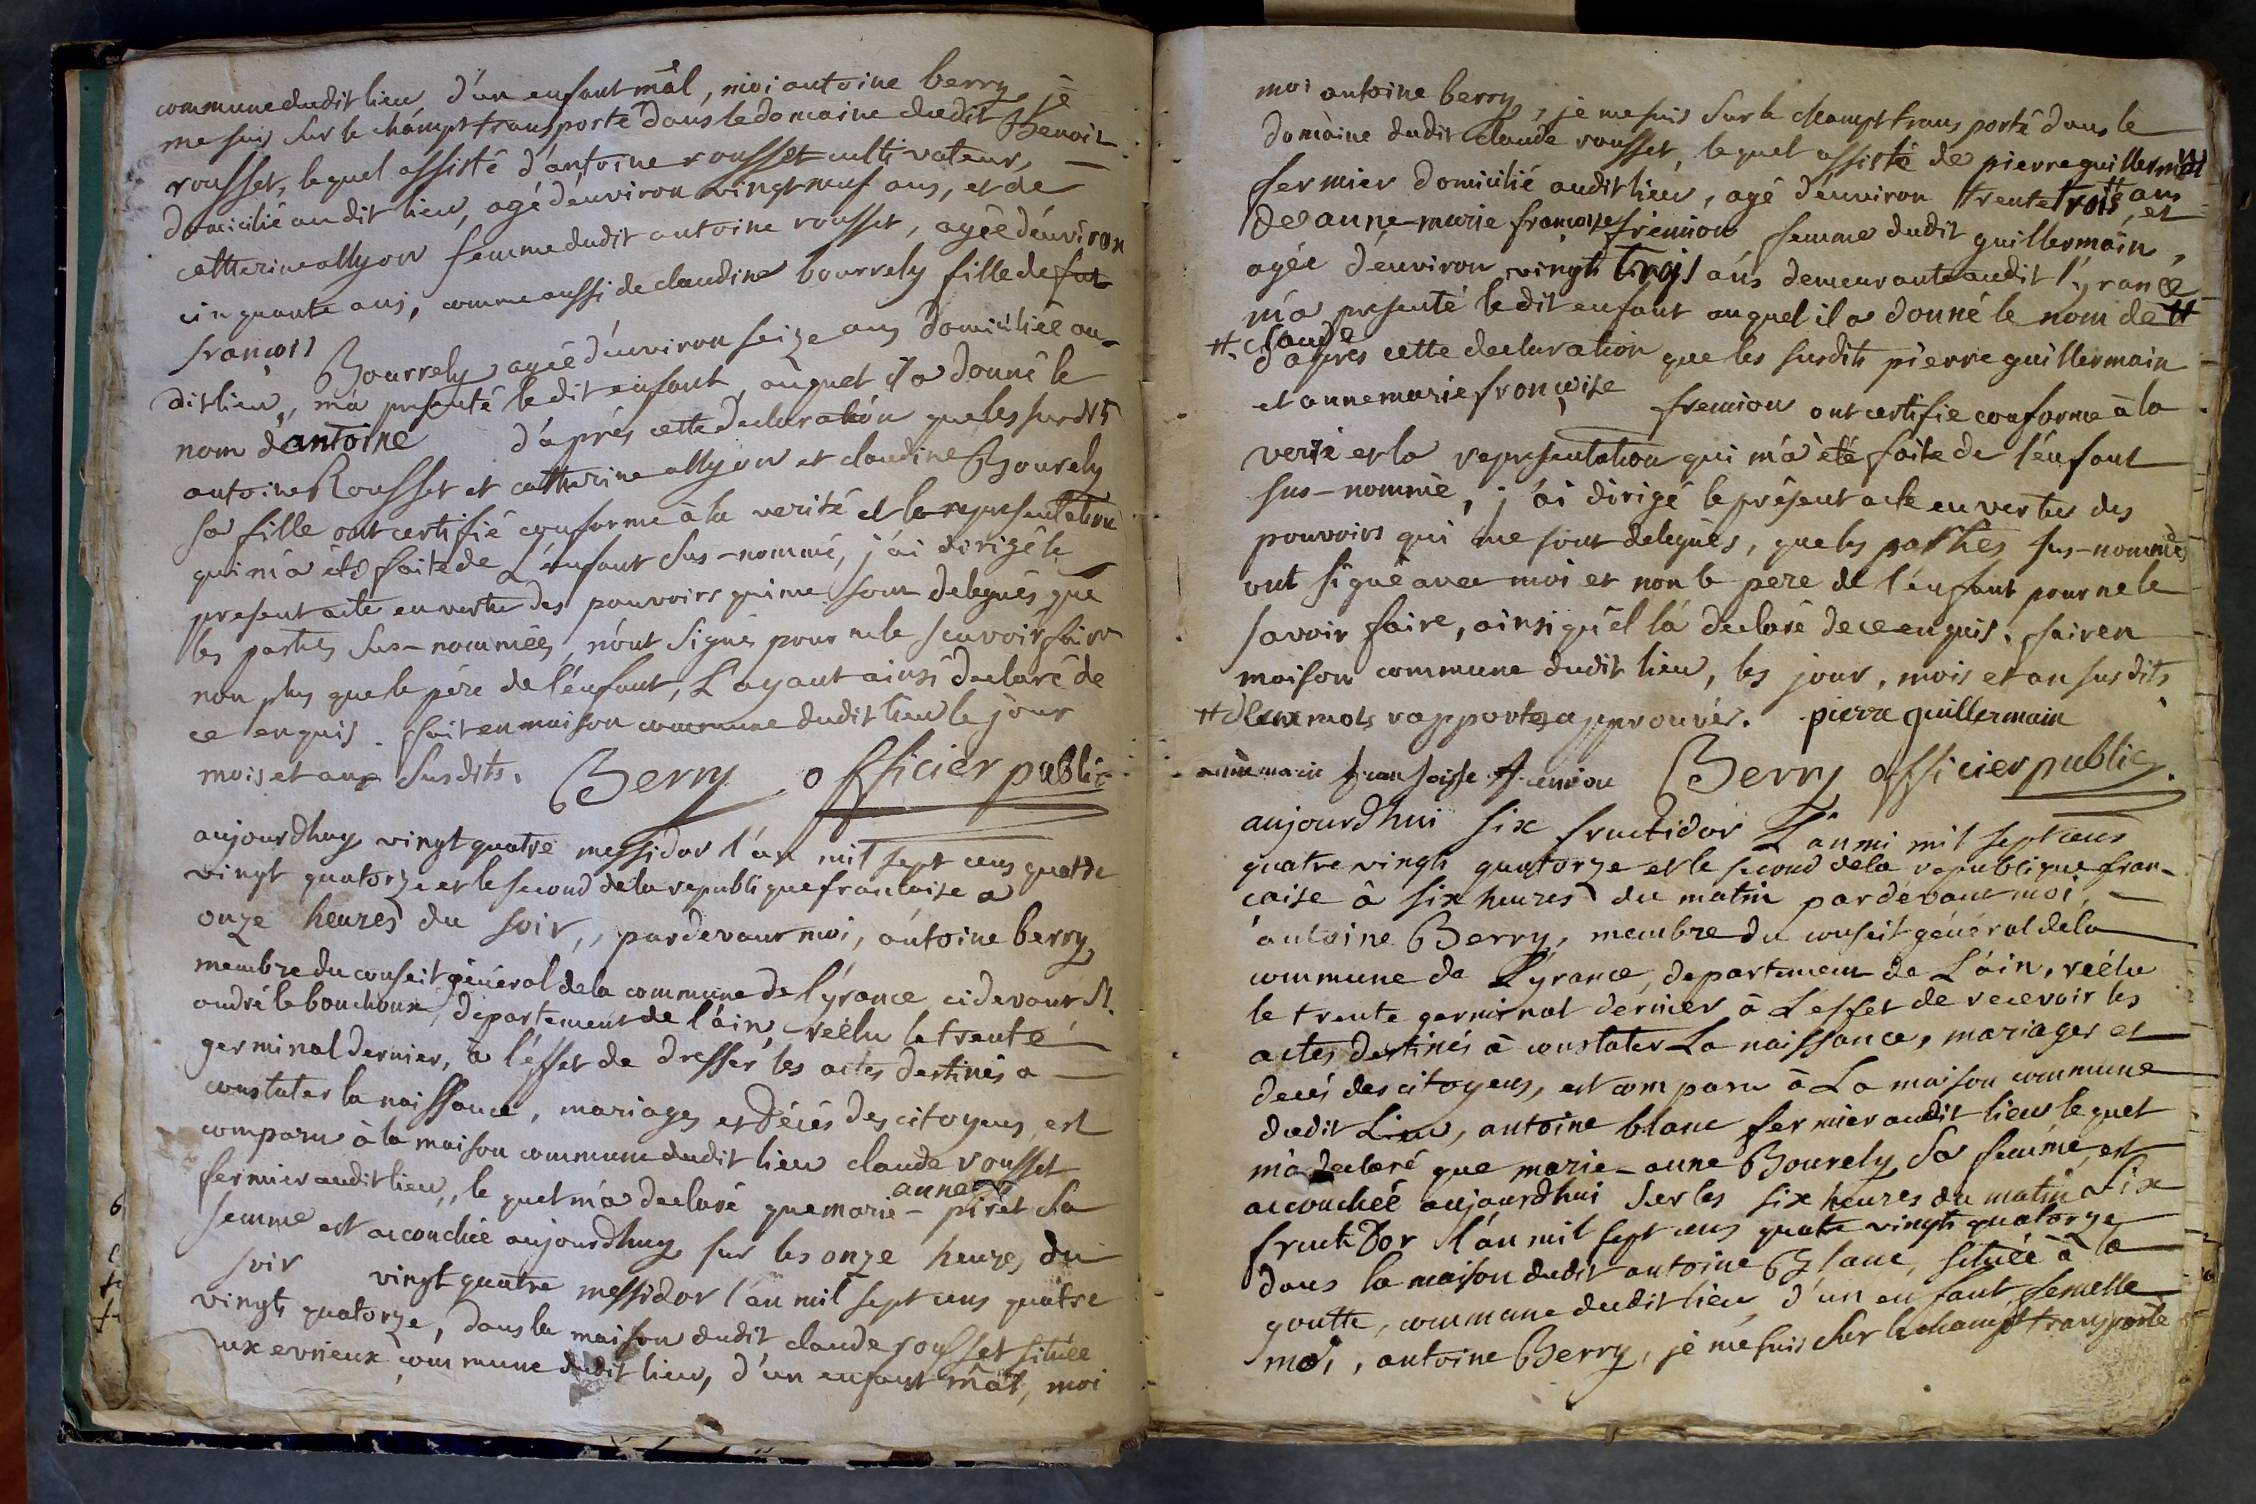 commune dudit lieu, d'un enfant mâl, moi antoine berry, je
me suis sur le champt transporté dans le domaine dudit Benoit
rousset, lequel assisté d'antoine rousset cultivateur,
domicilié audit lieu, agé d'environ vingt neuf ans, et de
catherine allyon femme dudit antoine rousset, agée d'environ
cinquante ans, comme aussi de claudine bourrely fille de fut
françois Bourrely agée d'environ seize ans domiciliée au-
dit lieu, m'a presenté ledit enfant, auquel il a donné le
nom d'antoine d'aprés cette declaration que les surdits
antoine Rousset et catherine allyon et claudine Bourely
sa fille ont certifié conforme à la verité et la representation
qui m'a été faite de L'enfant sus-nommé, j'ai dirigé le
present acte en vertu des pouvoirs qui me sont delegués que
les parties sus-nommées, n'ont signé pour ne le scavoir faire
non plus que le pére de l'enfant, L'ayant ainsi declaré de
ce enquis. fait en maison commune dudit lieu le jour
mois et an susdits. Berry officier public
aujourdhuy vingt quatre messidor l'an mil sept cens quatre
vingt quatorze et le second de la republique francaise a
onze heures du soir, pardevant moi, antoine berry,
membre du conseil général de la commune de l'yrance cidevant st.
andré le bouchoux, departement de l'ain, réélu le trente
germinal dernier, a l'effet de dresser les actes destinés a
constater la naissance, mariages et décés des citoyens, est
comparu à la maison commune dudit lieu claude rousset
fermier audit lieu, le quel m'a declaré que marie - anne piret sa
femme est accouchée aujourdhuy sur les onze heures du
soir vingt quatre messidor l'an mil sept cens quatre
vingts quatorze, dans la maison dudit claude rousset située
aux evrieux commune dudit lieu, d'un enfant mâl, moi
moi antoine berry, je me suis sur le champt transporté dans le
domaine dudit claude rousset, lequel assisté de pierre guillermin
fermier domicilié audit lieu, agé d'environ trente trois ans et
de anne-marie françoise fremion femme dudit guillermain,
agée d'environ vingts trois ans demeurante audit l'yrance
m'a presenté ledit enfant auquel il a donné le nom de #
#. claude
d'aprés cette declaration que les susdits pierre guillermain
et anne marie françoise fremion ont certifie conforme à la
verité et la representation qui m'a été faite de l'enfant
sus-nommé, j'ai dirigé le présent acte en vertu des
pouvoirs qui me sont delegués, que les parties sus-nommés
ont signé avec moi et non le pere de l'enfant pour ne le
savoir faire, ainsi qu'il l'a declaré de ce enquis. fait en
maison commune dudit lieu, les jour, mois et an susdits
# deux mots rapportés approuvés. pierre guillermain
anne marie fransoisse fremiou Berry officier public
aujourdhui six fructidor L'an mil sept cens
quatre vingts quatorze et le second de la republique fran-
caise à six heures du matin pardevant moi,
antoine Berry, membre du conseil général de la
commune de l'yrance, departement de L'ain, réélu
le trente germinal dernier à L'effet de recevoir les
actes destinés à constater La naissance, mariages et
decés des citoyens, est comparu à La maison commune
dudit Lieu, antoine blanc fermier audit lieu lequel
m'a declaré que marie-anne Bourely sa femme, est
accouchée aujourdhui sur les six heures du matin six
fructidor l'an mil sept cens quatre vingts quatorze
dans la maison dudit antoine Blanc, située à la
goutte, commune dudit lieu, d'un enfant femelle
moi, antoine Berry, je me suis sur le champt transporté